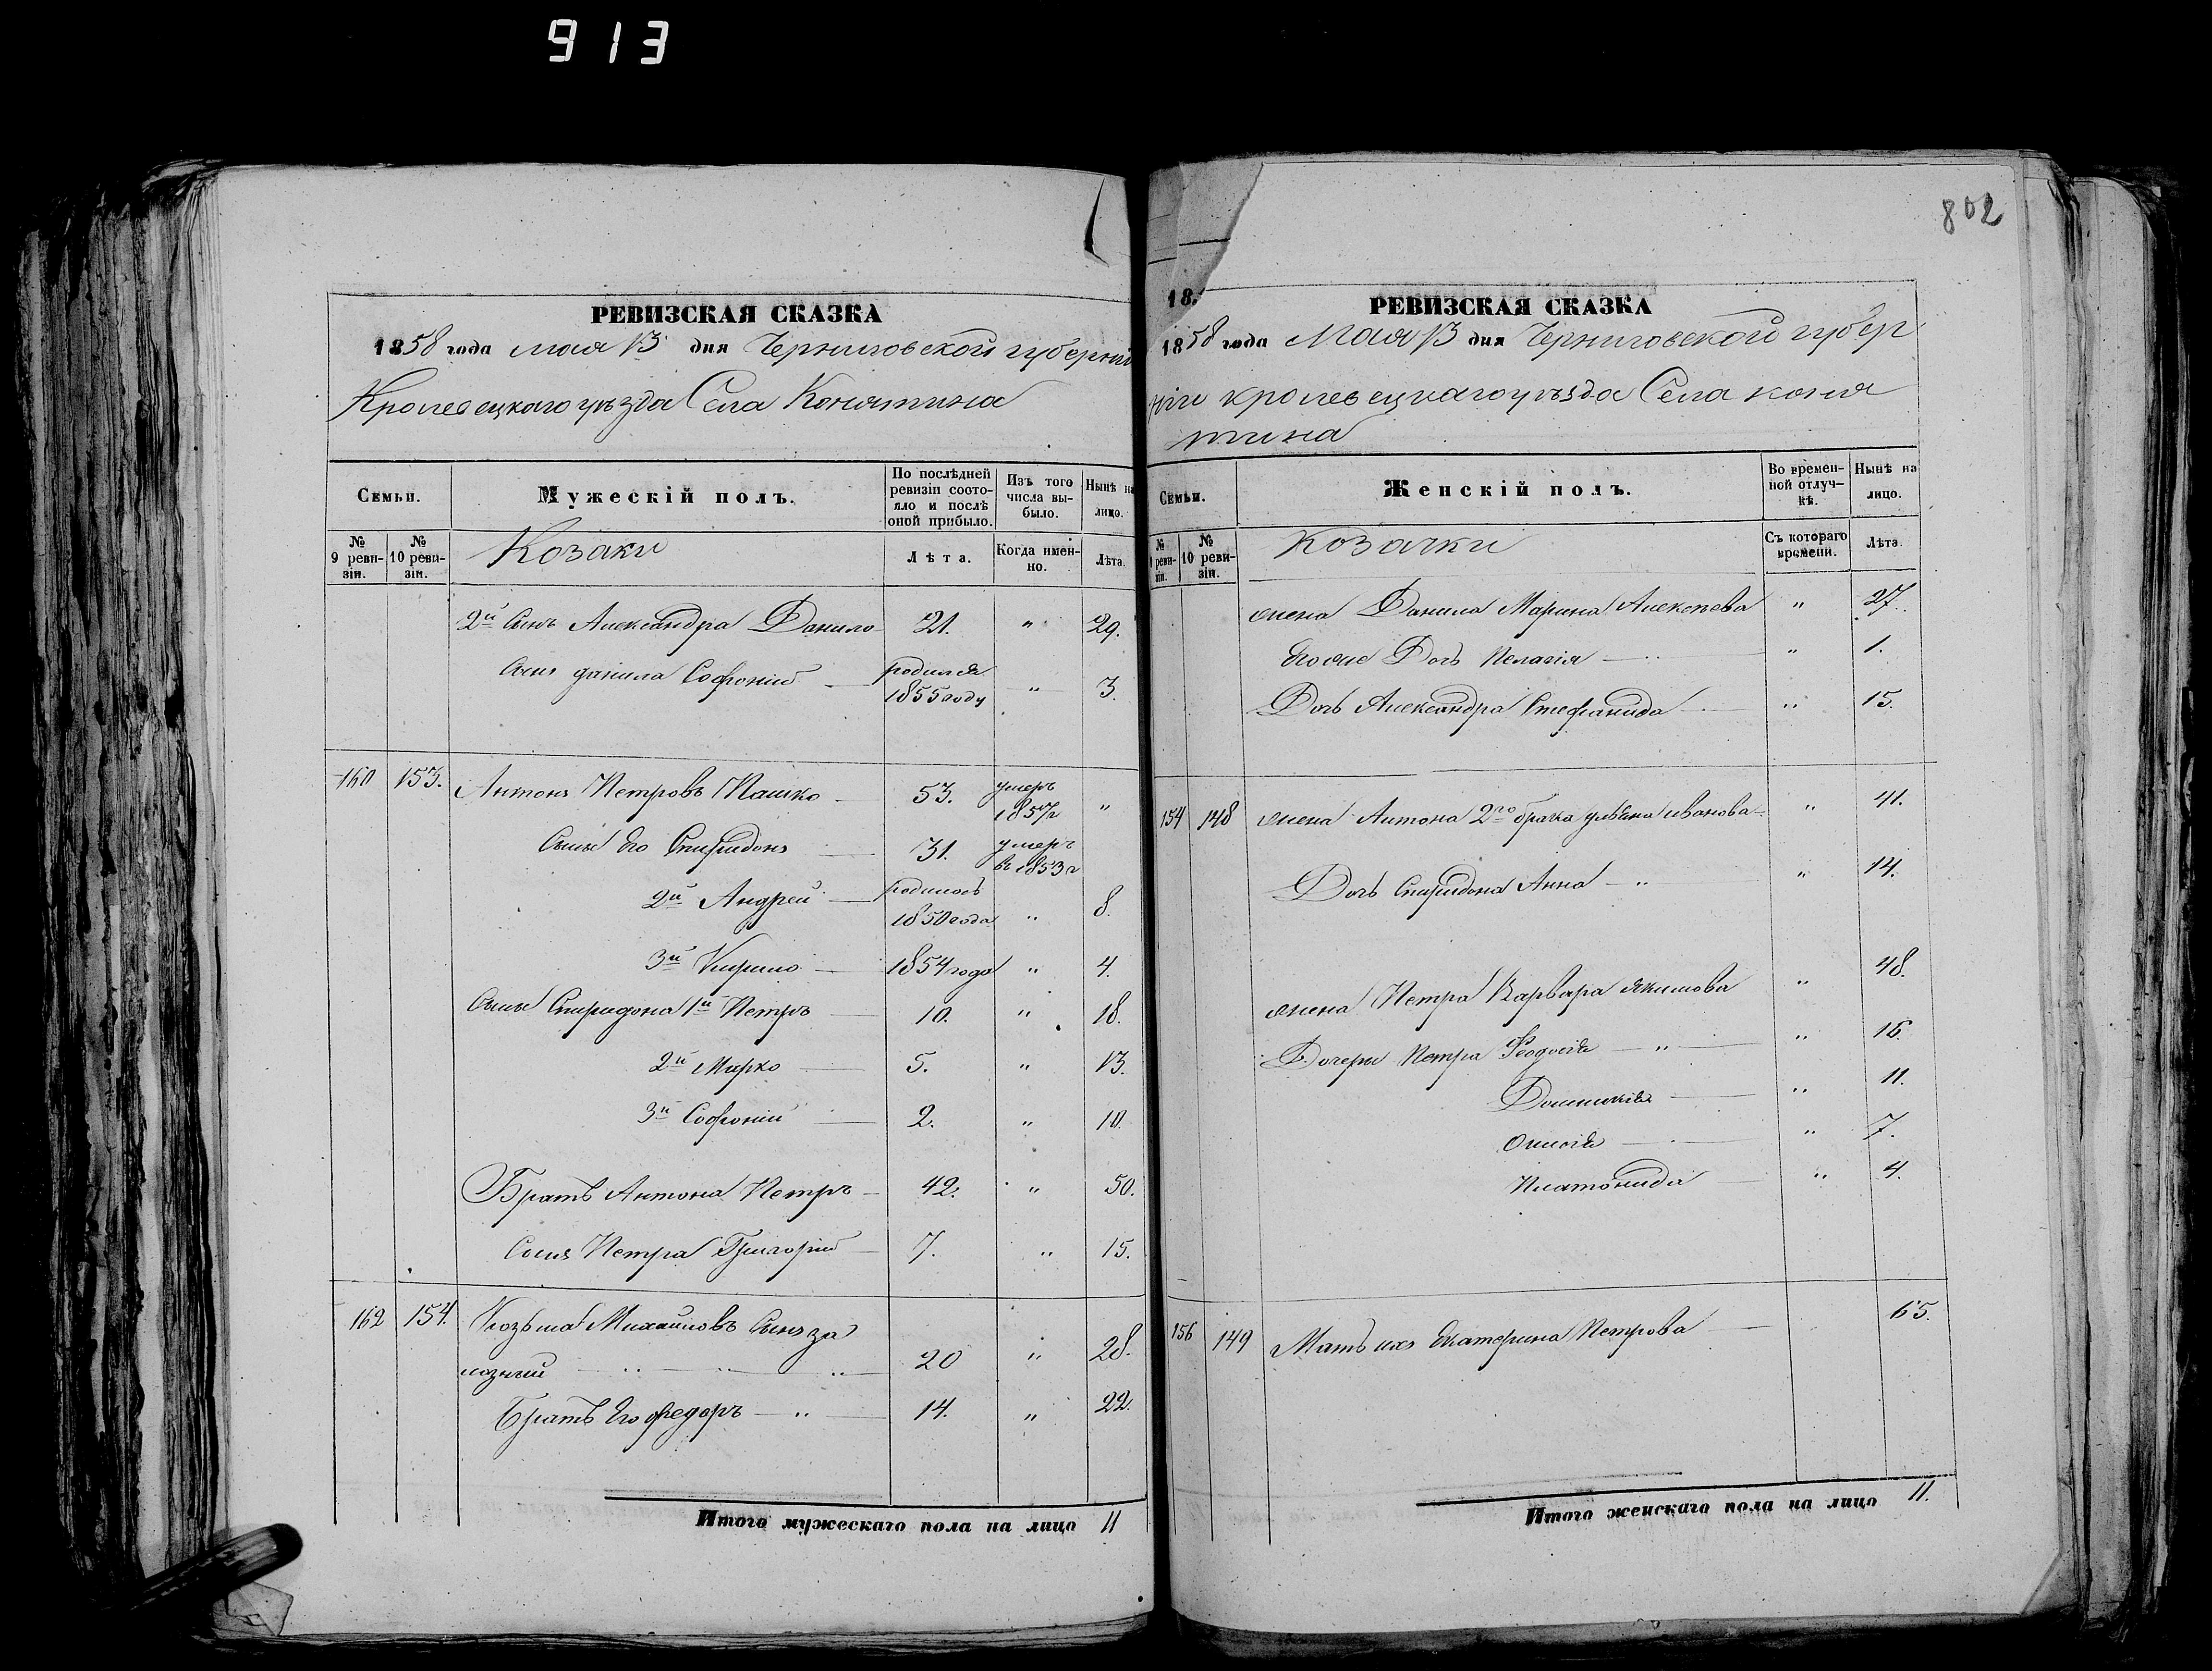 913
802
РЕВИЗСКАЯ СКАЗКА
1858 года мая 13 дня Черниговской губерніи
Кролевецкаго уѣзда Села Конятина
Семьи.
Мужескій полъ.
По послѣдней ревизіи состояло и послѣ оной прибыло.
Изъ того числа выбыло.
Нынѣ на лицо.
№ 9 ревизіи.
№ 10 ревизіи.
Козаки
Лѣта.
Когда именно.
Лѣта.
2й Сынъ Александра Данило 21. " 29.
Сынъ данила Софроній — родился 1855 году " 3.
160 153. Антонъ Петровъ Пашко — 53. умеръ 1857г "
Сынъ Его Спиридонъ — 31. умеръ въ 1853 г
2й Андрей — родилось 1850 года " 8.
3й Кирило — 1854 года " 4.
Сыны Спиридона 1й Петръ — 10. " 18.
2й Марко — 5. " 13.
3й Софроній — 2. " 10.
Братъ Антона Петръ — 42. " 50.
Сынъ Петра Григорій — 7. " 15.
162 154. Козьма Михайловъ Сынъ за
лозный — " — " — 20 " 28.
Братъ Его федоръ — " — 14. " 22.
Итого мужескаго пола на лицо 11
18.
РЕВИЗСКАЯ СКАЗКА
1858 года Мая 13 дня Черниговской губер
ніи кролевецкаго уѣзда Села коня
тина
Семьи.
Женскій полъ.
Во временной отлучкѣ.
Нынѣ на лицо.
№ 9 ревизіи.
№ 10 ревизіи.
Козачки
Съ котораго времени.
Лѣта.
жена Данила Марина Алексѣева " 27.
Его же Дочь Пелагія — " — " 1.
Дочь Александра Стефанида — " 15.
154 148 жена Антона 2го брака ульяна иванова " 41.
Дочь Спиридона Анна — " " 14.
жена Петра Варвара якимова " 48.
Дочери Петра Феодосія — " — " 16.
Домникія — " 11.
— " 7.
Платонида — " 4.
156 149 Мать ихъ Екатерина Петрова — 65.
Итого женскаго пола на лицо 11.